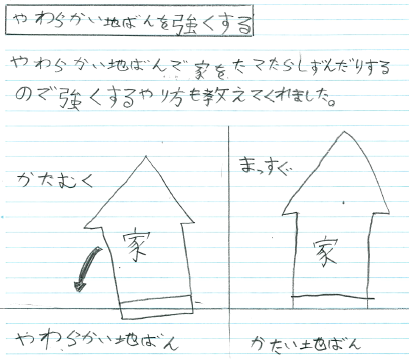 やわらかい地ばんを強くする
やわらかい地ばんで家をたてたらしずんだりする
ので強くするやり方も教えてくれました。
かたむく
まっすぐ
家
家
やわらかい地ばん
かたい土地ばん